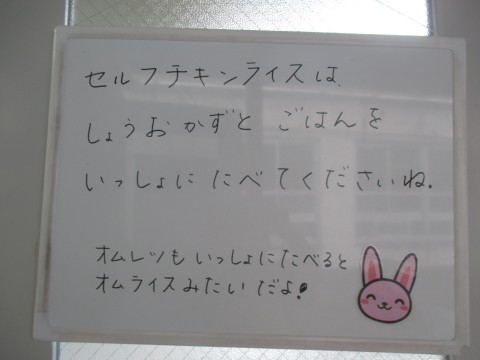 セルフチキンライスは、
しょうおかずと ごはんを
いっしょに たべてくださいね.
オムレツも いっしょにたべると
オムライスみたいだよ!